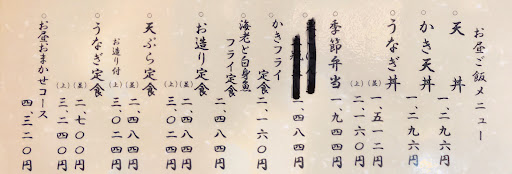 お昼ご飯メニュー
○天丼 一、二九六円
○かき天丼 一、二九六円
○うなぎ丼 (並) 一、五一二円
(上) 二、一六〇円
○季節弁当 一、九四四円
一、四八四円
○かきフライ定食 二、一六〇円
○海老と白身魚フライ定食 二、四八四円
○お造り定食 二、四八四円
(上) 三、〇二四円
○天ぷら定食 (並) 二、四八四円
お造り付 (上) 三、〇二四円
○うなぎ定食 (並) 二、七〇〇円
(上) 三、二四〇円
○お昼おまかせコース 四、三二〇円